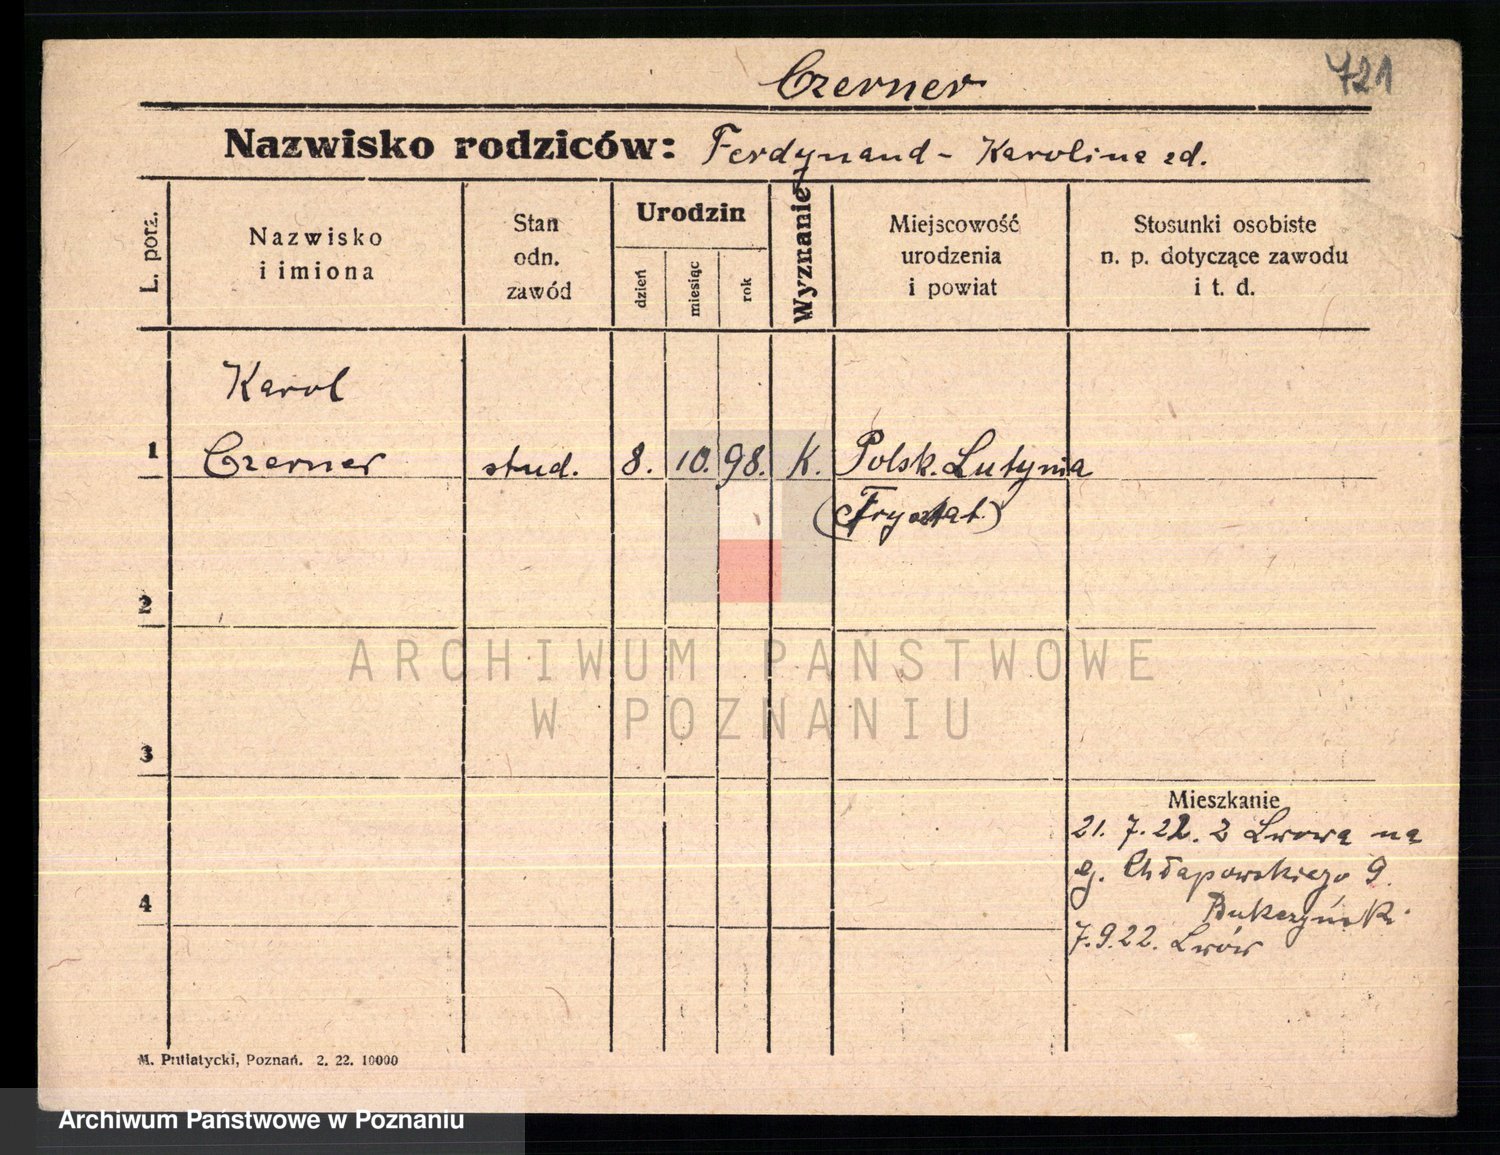 Czerner
721
Nazwisko rodziców: Ferdynand - Karolina zd.
L. porz.
Nazwisko
i imiona
Stan
odn.
zawód
Urodzin
dzień
miesiąc
rok
Wyznanie
Miejscowość
urodzenia
i powiat
Stosunki osobiste
n. p. dotyczące zawodu
i t. d.
Karol
1 Czerner stud. 8. 10. 98. K. Polsk. Lutynia
(Frysztat)
2
ARCHIWUM PAŃSTWOWE
W POZNANIU
3
Mieszkanie
21. 7. 22. z Lwowa na
Chłapowskiego 9
4
Bukczyński
7. 9. 22. Lwów
M. Putiatycki, Poznań. 2. 22. 10000
Archiwum Państwowe w Poznaniu